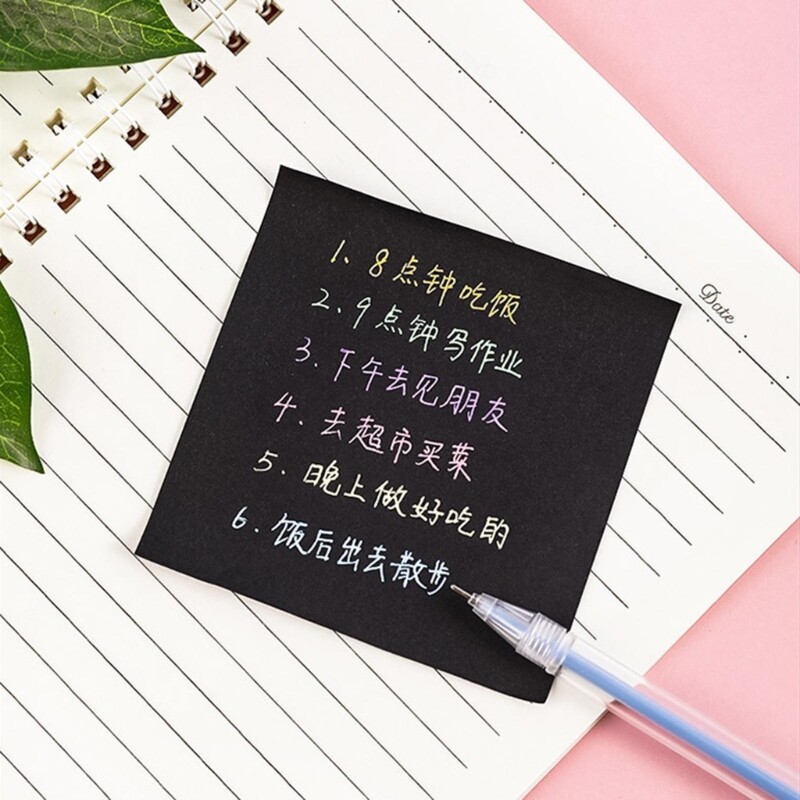 1. 8点钟吃饭
2. 9点钟写作业
3. 下午去见朋友
4. 去超市买菜
5. 晚上做好吃的
6. 饭后出去散步
Date